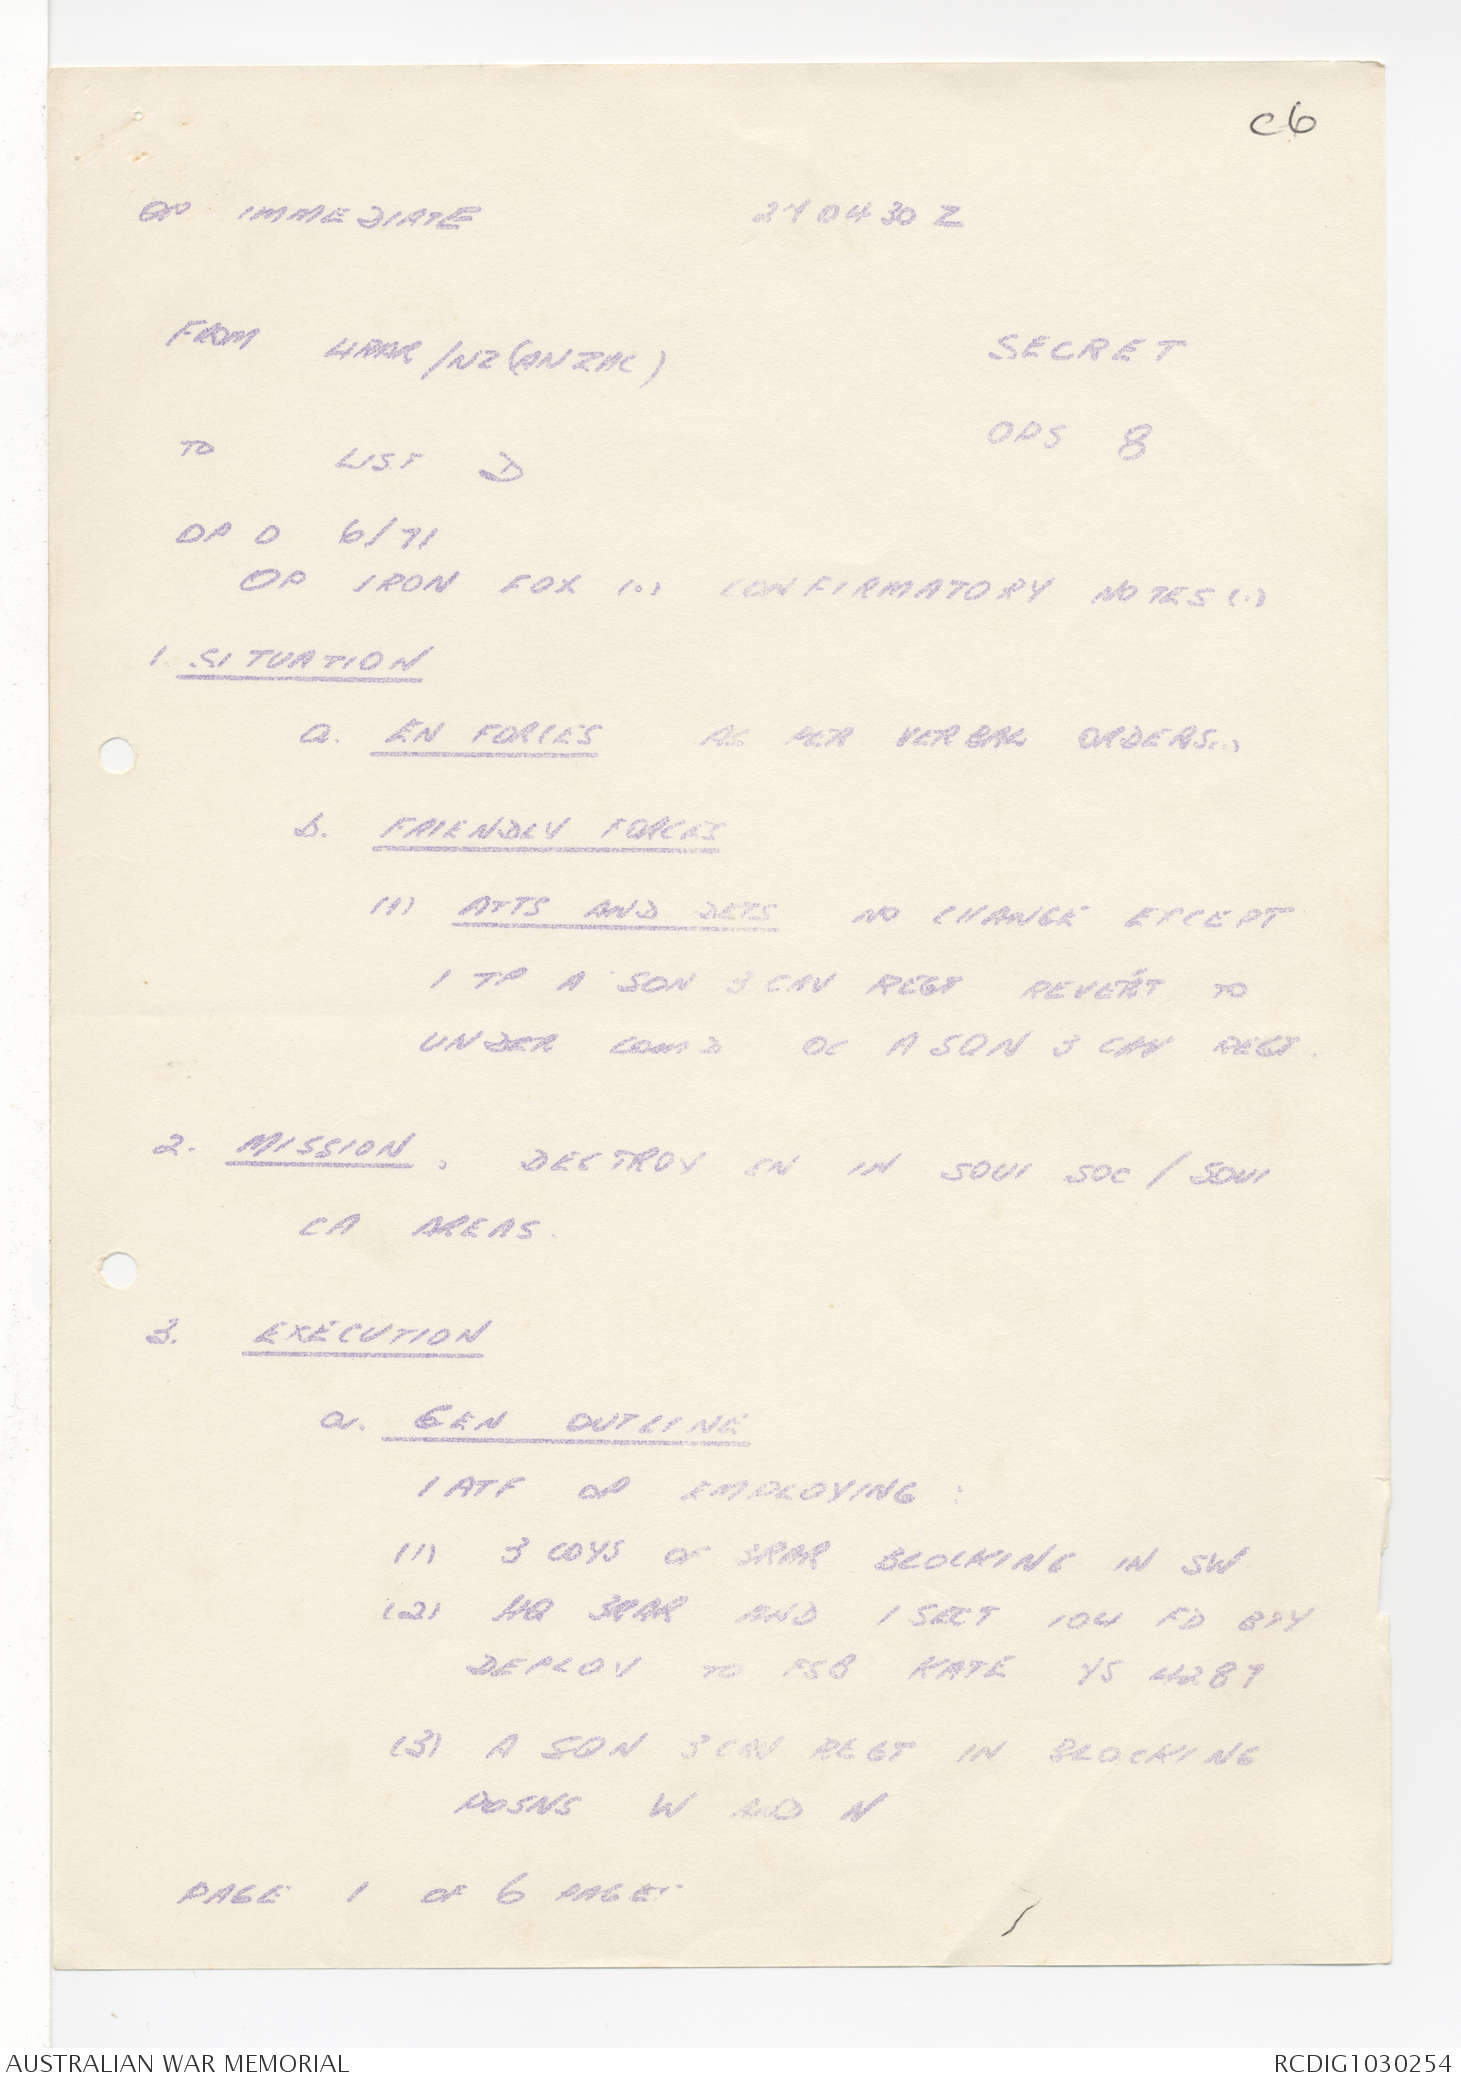 C6
OP IMMEDIATE 270430Z
FROM 4RAR/NZ(ANZAC) SECRET
TO LIST D OPS 8
OP O 6/71
OP IRON FOX (.) CONFIRMATORY NOTES (.)
1. SITUATION
a. EN FORCES AS PER VERBAL ORDERS(.)
b. FRIENDLY FORCES
(1) ATTS AND DETS NO CHANGE EXCEPT
1 TP A SQN 3 CAV REGT REVERT TO
UNDER COMD OC A SQN 3 CAV REGT.
2. MISSION. DESTROY EN IN SOUI SOC / SOUI
CA AREAS.
3. EXECUTION
a. GEN OUTLINE
1 ATF OP EMPLOYING:
(1) 3 COYS OF 3RAR BLOCKING IN SW
(2) HQ 3RAR AND 1 SECT 104 FD BTY
DEPLOY TO FSB KATE YS 4287
(3) A SQN 3 CAV REGT IN BLOCKING
POSNS W AND N
PAGE 1 OF 6 PAGES
AUSTRALIAN WAR MEMORIAL RCDIG1030254